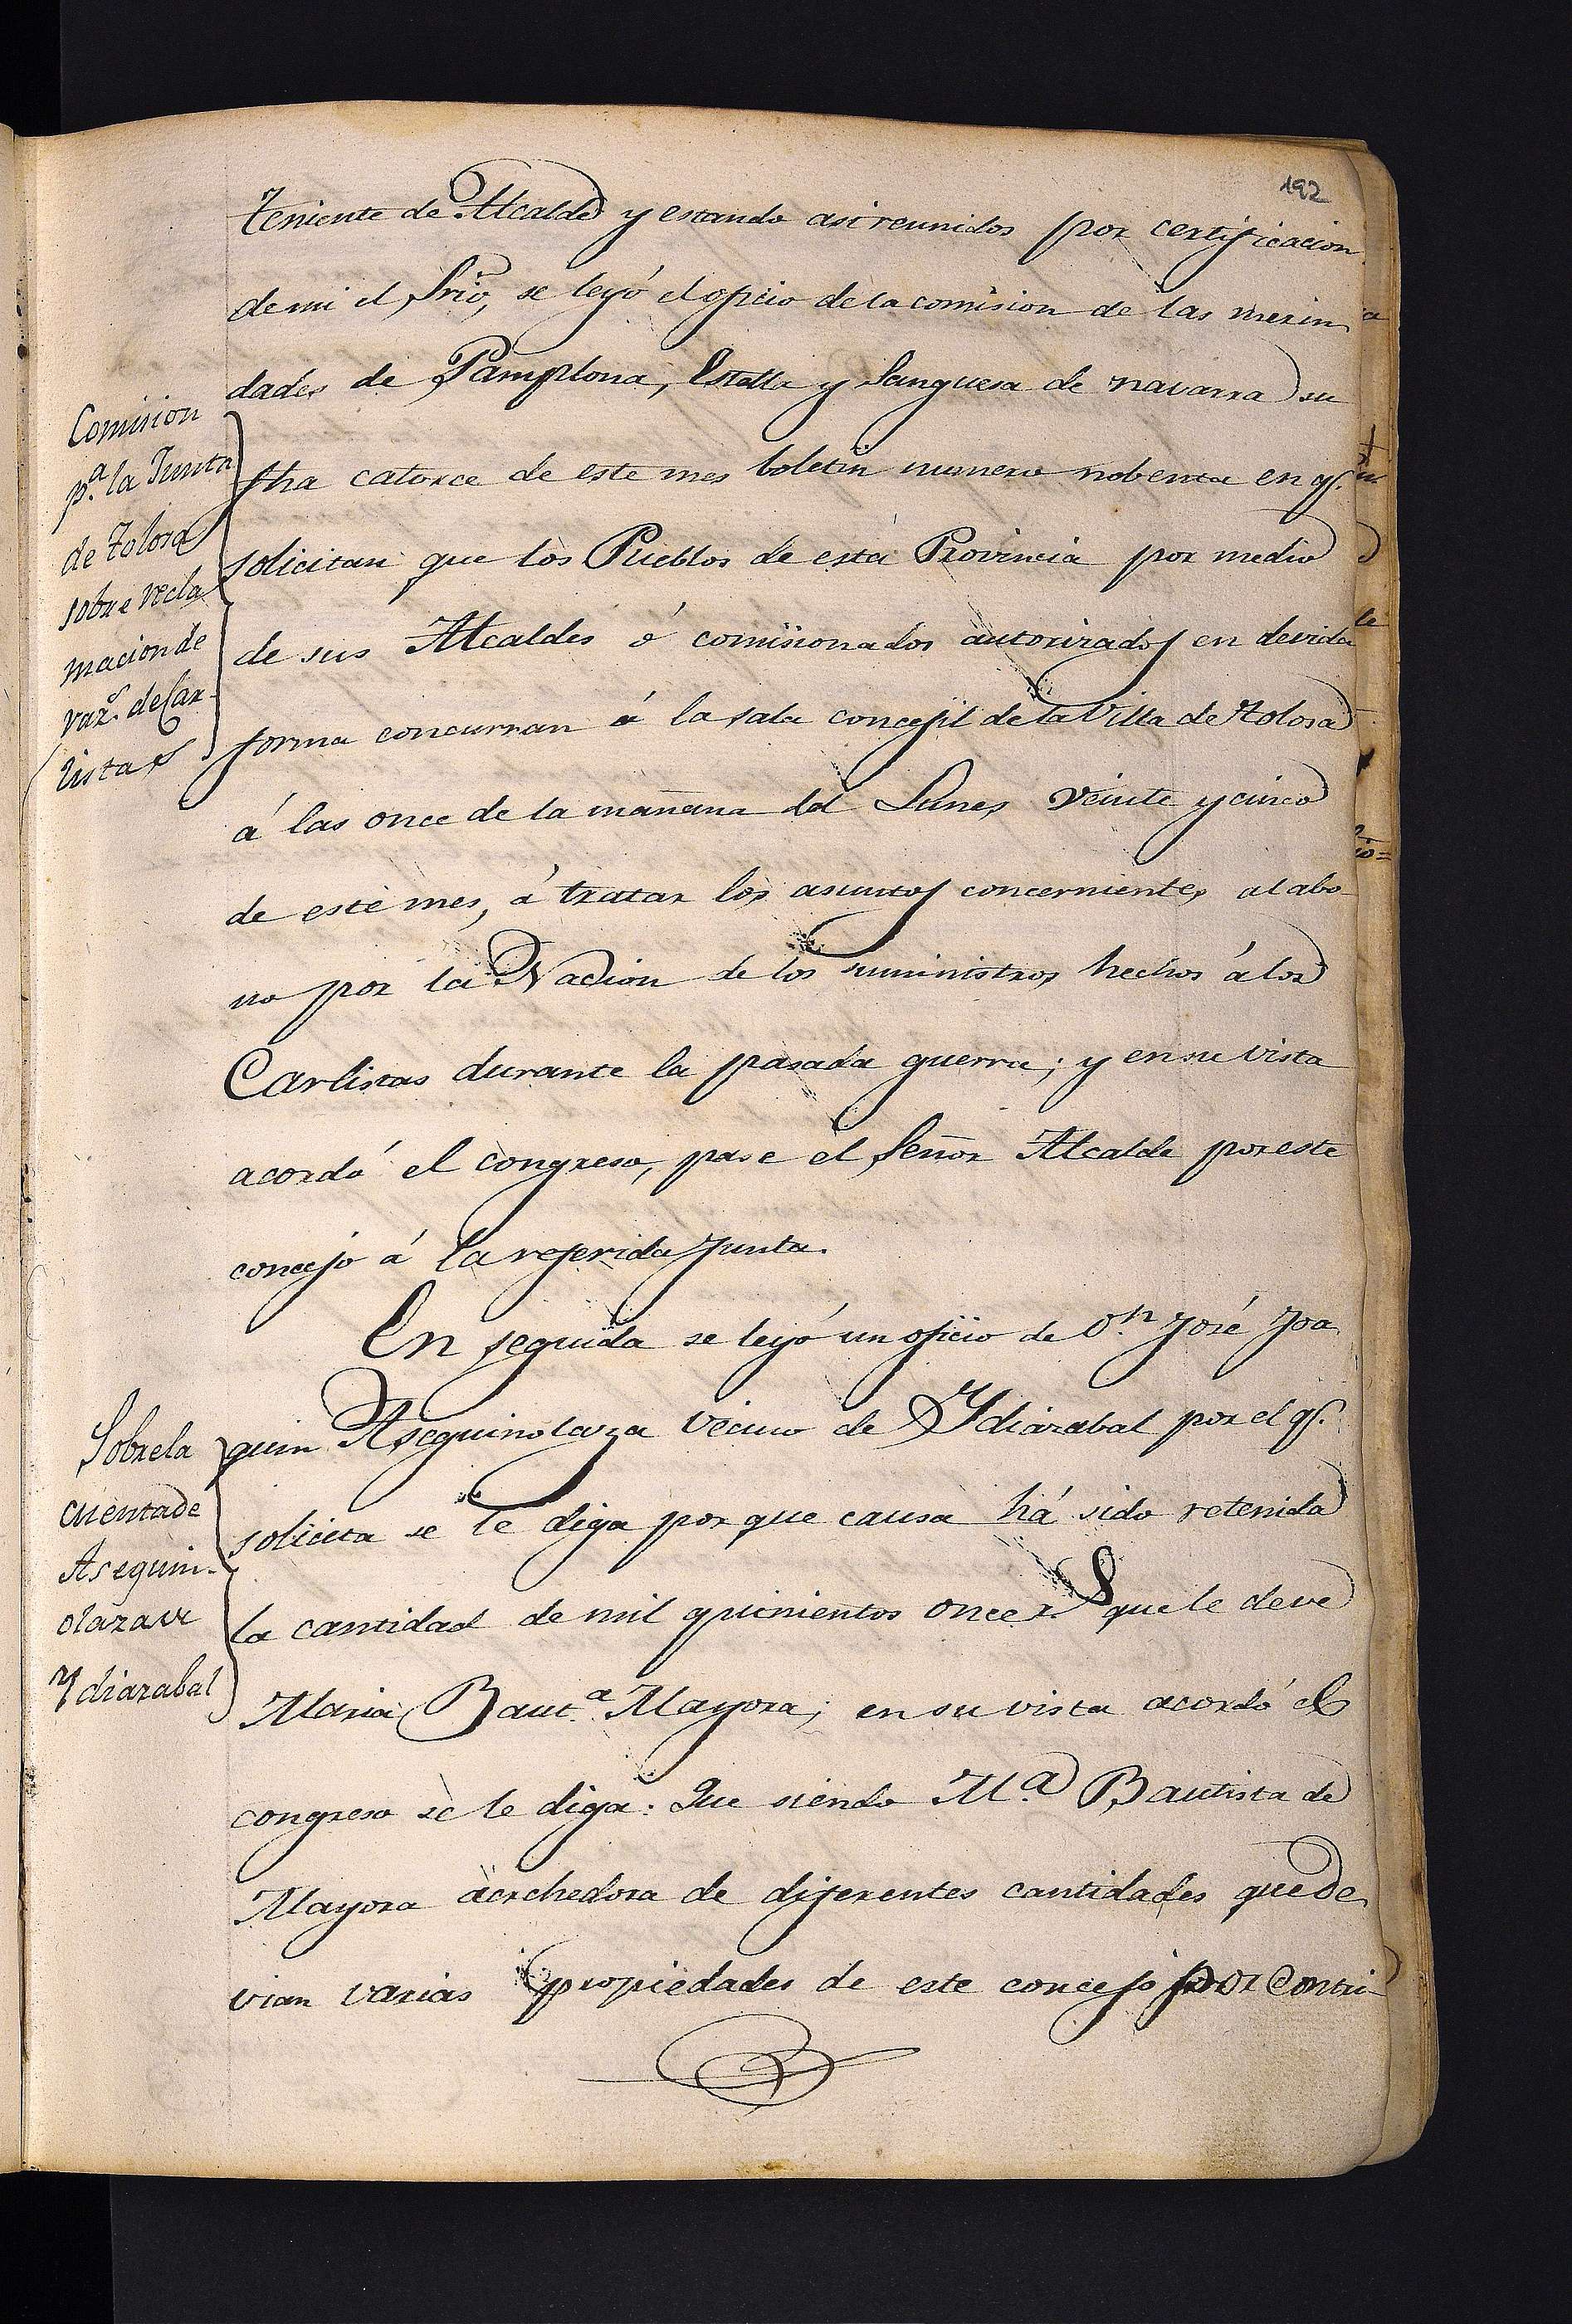 192
Teniente de Alcalde y estando asi reunidos por certificacion
de mi el Srio, se leyó el oficio de la comision de las merin
dades de Pamplona, Estella y Sanguesa de navarra su
Comision
p.ª la Junta
de Tolosa
sobre recla
macion de
raz.s de Car-
listas
fha catorce de este mes boletin numero nobenta en q.e
solicitan que los Pueblos de esta Provincia por medio
de sus Alcaldes ó comisionados autorizados en devida
forma concurran á la sala concejil de la Villa de Tolosa
á las once de la mañana del Lunes veinte y cinco
de este mes, á tratar los asuntos concernientes al abo
no por la Nacion de los suministros hechos á los
Carlistas durante la pasada guerra; y en su vista
acordó el congreso, pase el Señor Alcalde por este
concejo á la referida Junta.
En seguida se leyó un oficio de D.n José Joa
Sobre la
cuenta de
Aseguin-
olaza de
Ydiazabal
quin Aseguinolaza vecino de Ydiazabal por el q.e
solicita se le diga por que causa há sido retenida
la cantidad de mil quinientos once r.s que le deve
Maria Baut.ª Mayora; en su vista acordó el
congreso se le diga: Que siendo M.ª Bautista de
Mayora acrehedora de diferentes cantidades que de
vian varias propiedades de este concejo por contri-